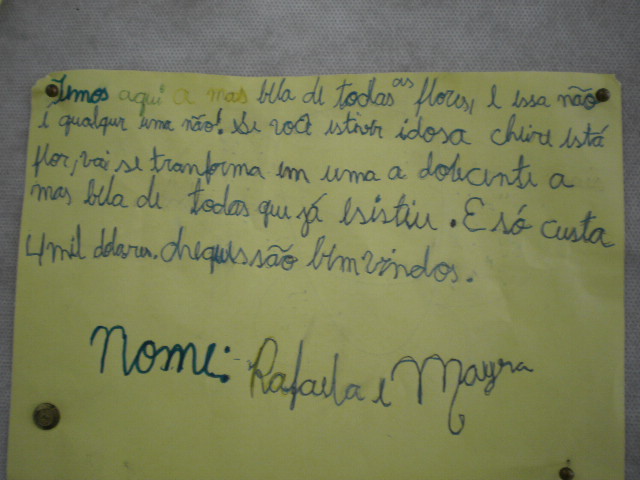 Temos aqui a mas bela de todas as flores, e essa não
é qualquer uma não! Se você estiver idosa cheire está
flor, vai se tranforma em uma a dolecente a
mas bela de todas que já esistiu. E só custa
4 mil dolares. cheques são bemvindos.
Nome: Rafaela e Mayra